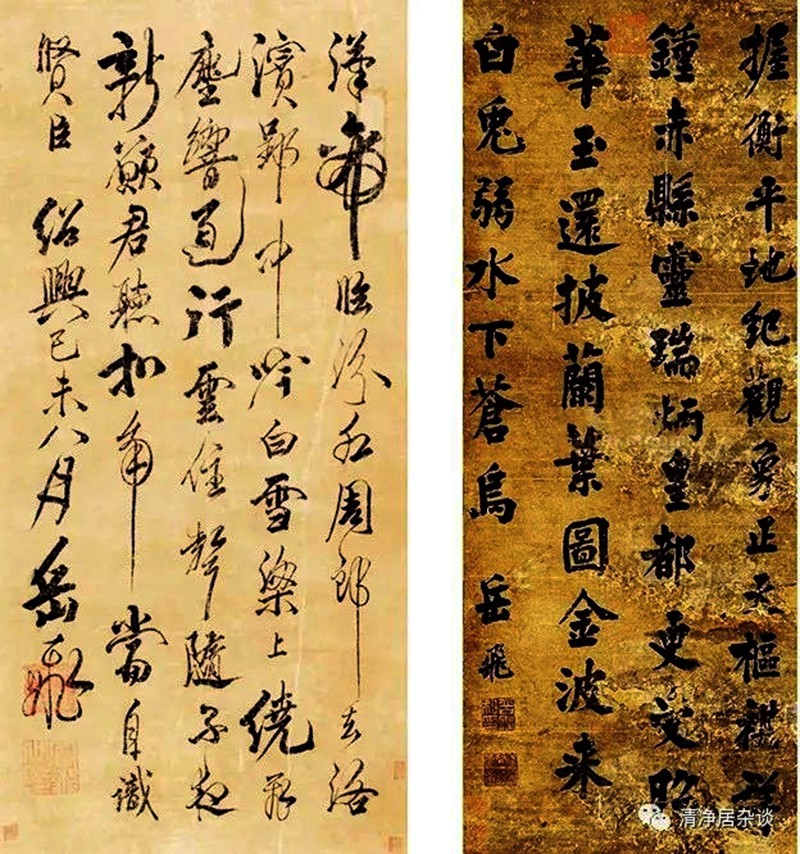 漢帝臨汾水周郎去洛
濱郢中吟白雪梁上繞飛
塵響遏行雲住聲隨子夜
新願君聽扣角當自識
賢臣 紹興己未八月 岳飛
握衡平地紀觀象正天樞祺祥
鍾赤縣靈瑞炳皇都更受昭
華玉還披蘭葉圖金波来
白兔弱水下蒼烏 岳飛
清净居杂谈